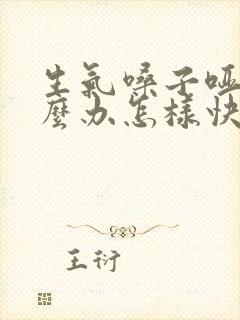 生氣嗓子啞
麼办怎樣快
王衍